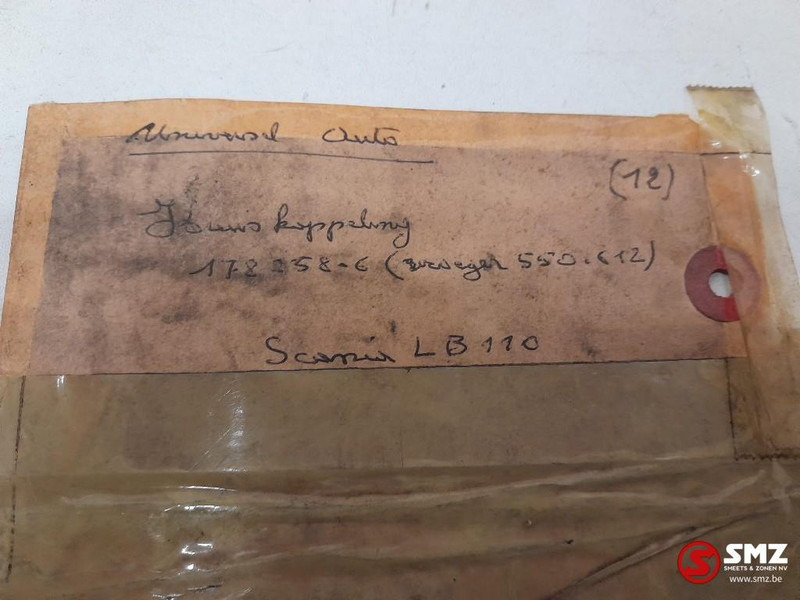 Universal Auto
(12)
koppeling
178258-6 (vroeger 550.612)
Scania LB 110
SMZ
SMEETS & ZONEN NV
www.smz.be